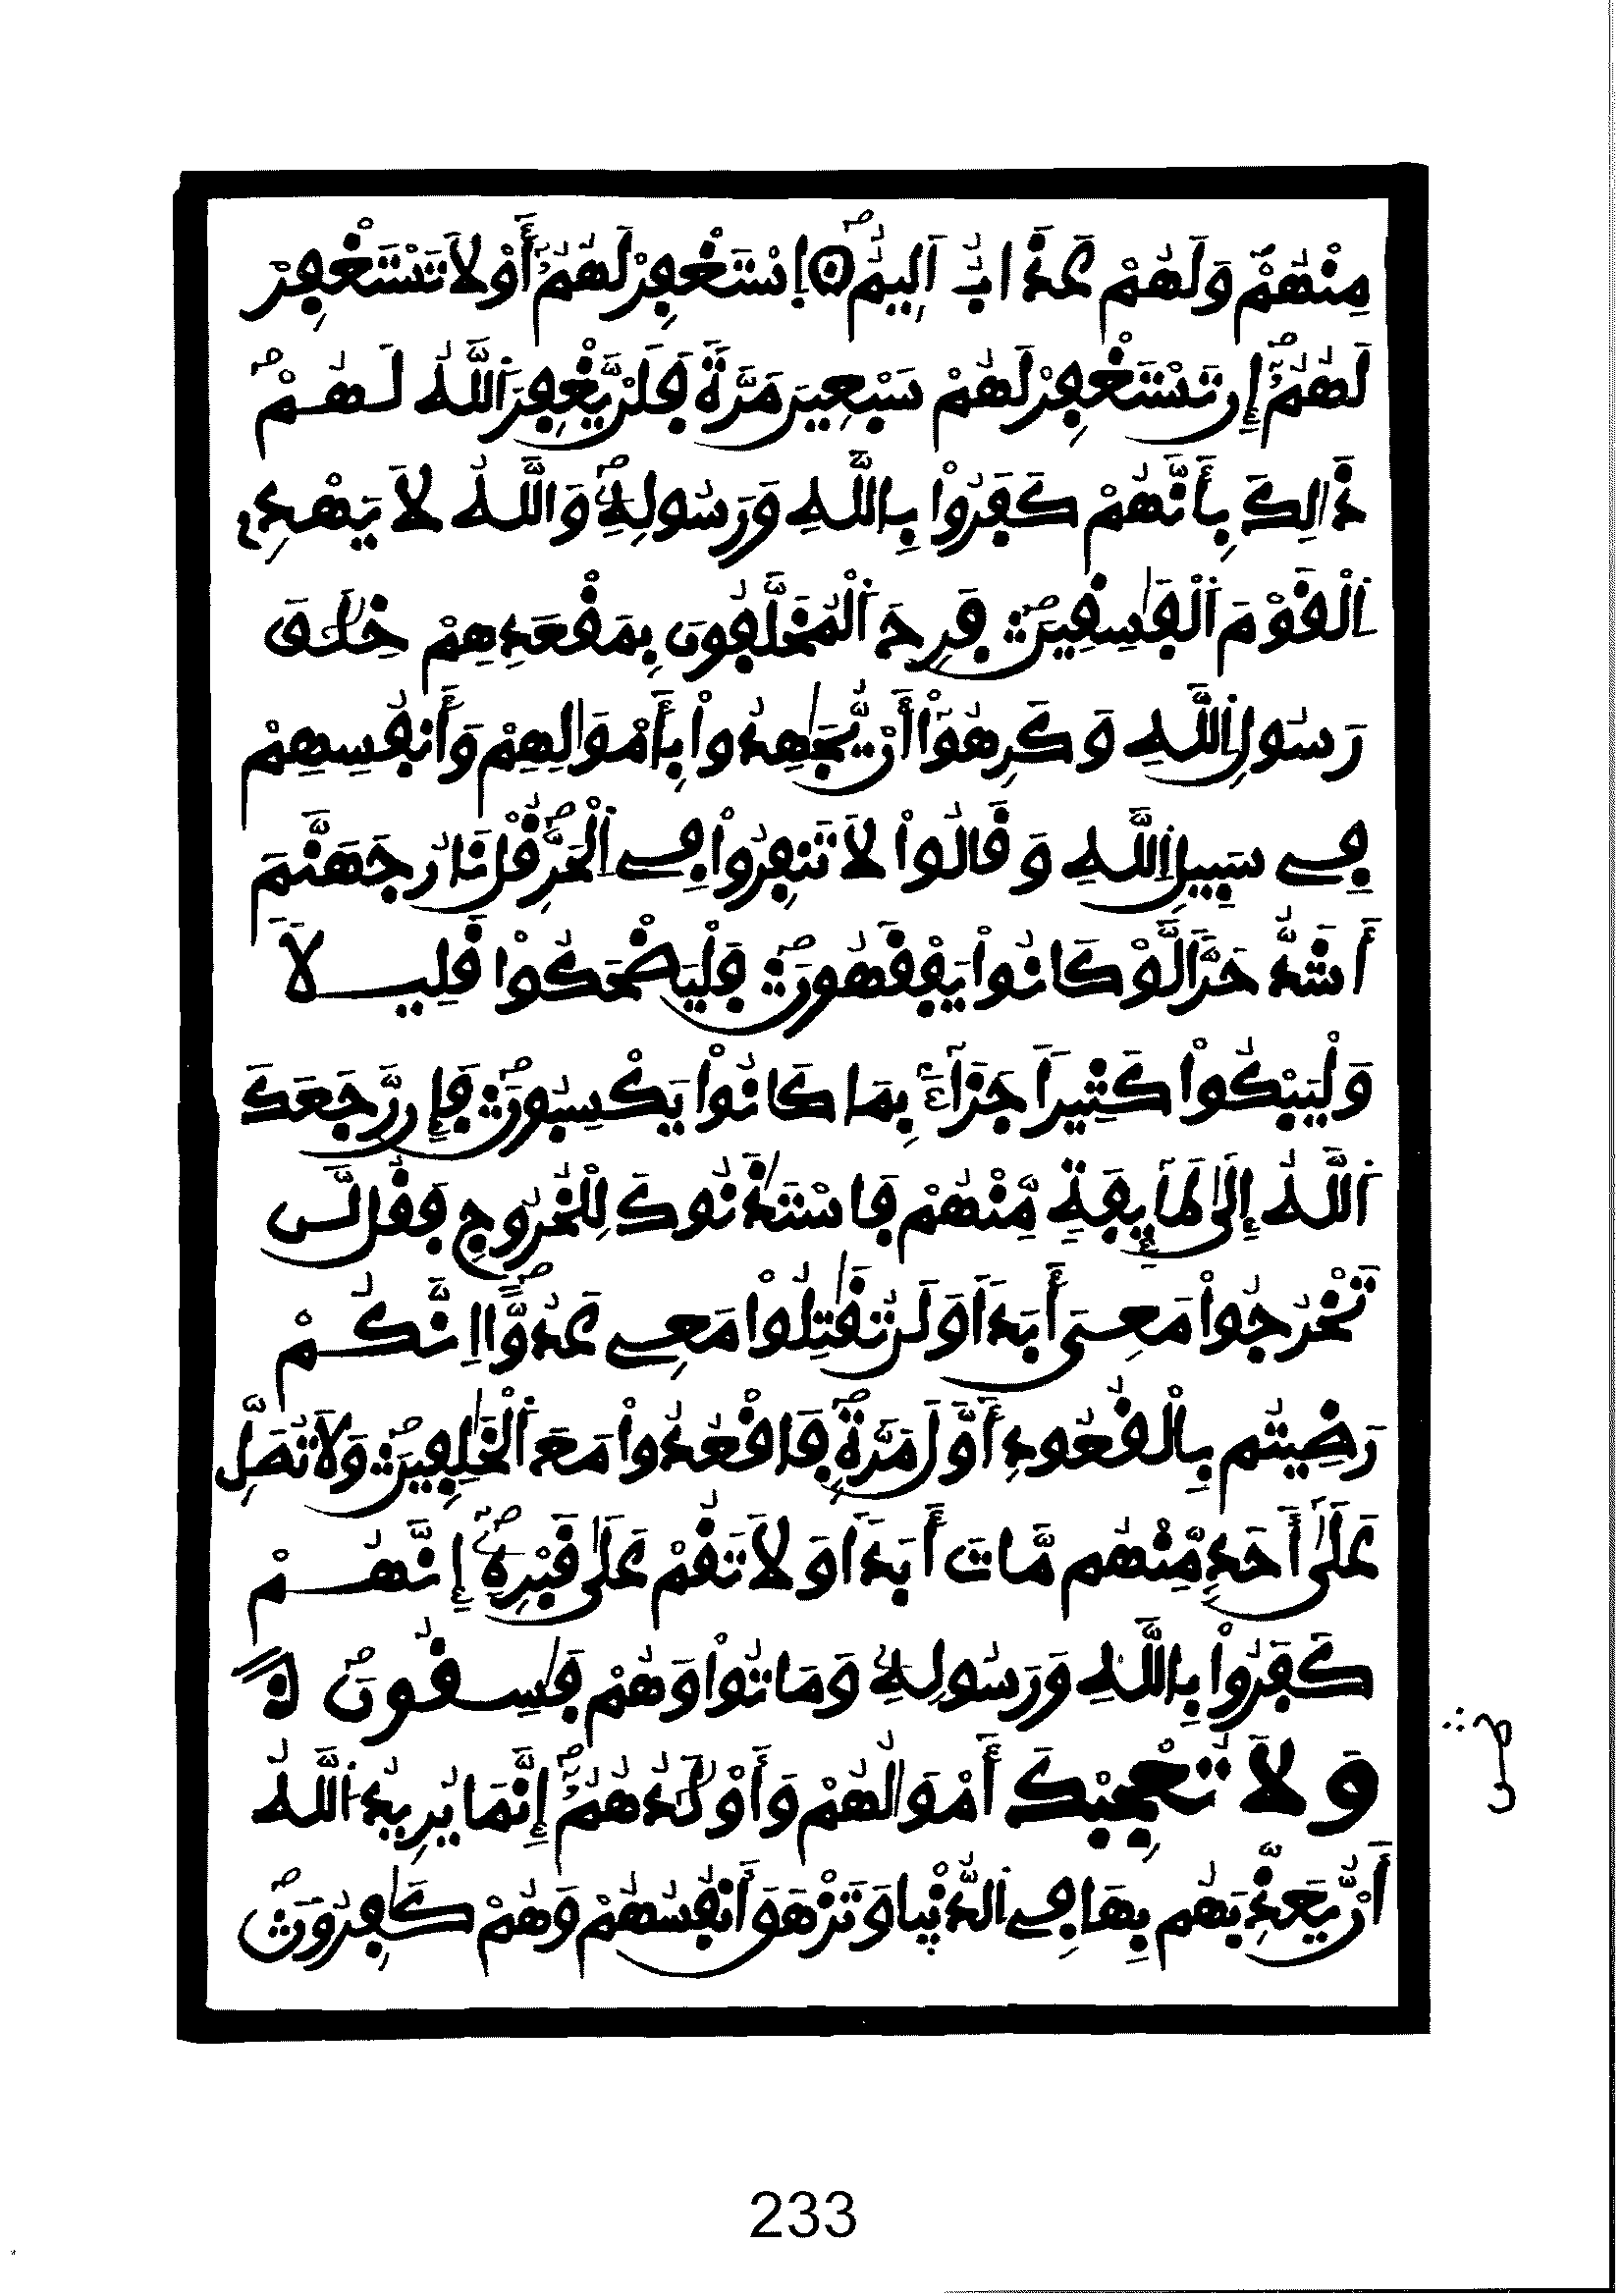 مِنْهُمْ وَلَهُمْ عَذَابٌ اَلِيمٌ ۞ اِسْتَغْفِرْ لَهُمُۥٓ أَوْ لَا تَسْتَغْفِرْ
لَهُمُۥٓ إِن تَسْتَغْفِرْ لَهُمْ سَبْعِينَ مَرَّةً فَلَنْ يَّغْفِرَ اَللَّهُ لَهُمْ
ذَٰلِكَ بِأَنَّهُمْ كَفَرُواْ بِاللَّهِ وَرَسُولِهِۦ وَاللَّهُ لَا يَهْدِے
اِلْقَوْمَ اَلْفَٰسِقِينَ فَرِحَ اَلْمُخَلَّفُونَ بِمَقْعَدِهِمْ خِلَٰفَ
رَسُولِ اِللَّهِ وَكَرِهُوٓاْ أَنْ يُّجَٰهِدُواْ بِأَمْوَٰلِهِمْ وَأَنفُسِهِمْ
فِے سَبِيلِ اِللَّهِ وَقَالُواْ لَا تَنفِرُواْ فِے اِلْحَرِّ قُلْ نَارُ جَهَنَّمَ
أَشَدُّ حَرّاً لَّوْ كَانُواْ يَفْقَهُونَ فَلْيَضْحَكُواْ قَلِيلاً
وَلْيَبْكُواْ كَثِيراً جَزَآءَۢ بِمَا كَانُواْ يَكْسِبُونَ فَإِن رَّجَعَكَ
اَللَّهُ إِلَىٰ طَآئِفَةٍ مِّنْهُمْ فَاسْتَـْٔذَنُوكَ لِلْخُرُوجِ فَقُل لَّن
تَخْرُجُواْ مَعِىَ أَبَداً وَلَن تُقَٰتِلُواْ مَعِے عَدُوّاً اِنَّكُمْ
رَضِيتُم بِالْقُعُودِ أَوَّلَ مَرَّةٍ فَاقْعُدُواْ مَعَ اَلْخَٰلِفِينَ وَلَا تُصَلِّ
عَلَىٰٓ أَحَدٍ مِّنْهُم مَّاتَ أَبَداً وَلَا تَقُمْ عَلَىٰ قَبْرِهِۦٓ إِنَّهُمْ
كَفَرُواْ بِاللَّهِ وَرَسُولِهِۦ وَمَاتُواْ وَهُمْ فَٰسِقُونَ
وَلَا تُعْجِبْكَ أَمْوَٰلُهُمْ وَأَوْلَٰدُهُمُۥٓ إِنَّمَا يُرِيدُ اُللَّهُ
أَنْ يُّعَذِّبَهُم بِهَا فِے اِلدُّنْيَا وَتَزْهَقَ أَنفُسُهُمْ وَهُمْ كَٰفِرُونَ
233